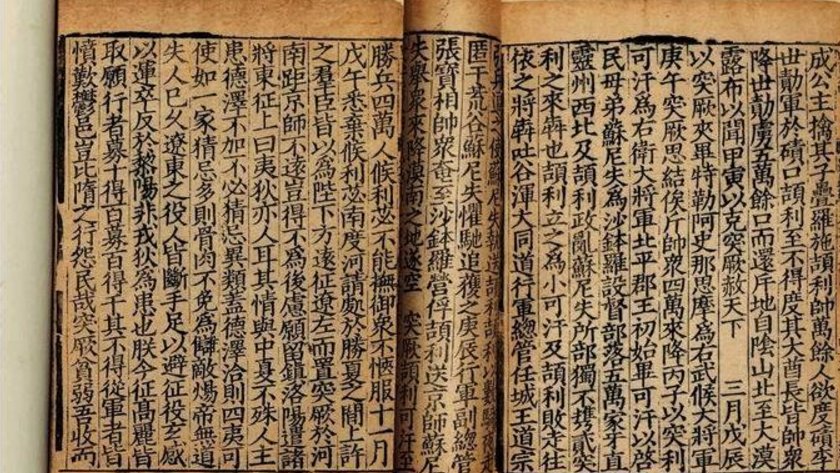 成公主擒其子疊羅施頡利帥萬餘人欲度磧李
世勣軍於磧口頡利至不得度其大酋長皆帥衆
降世勣虜五萬餘口而還斥地自陰山北至大漠
露布以聞甲寅以克突厥赦天下 三月戊辰
以突厥夾畢特勒阿史那思摩爲右武候大將軍
庚午突厥思結俟斤帥衆四萬來降丙子以突利
可汗爲右衛大將軍北平郡王初始畢可汗以啓
民母弟蘇尼失爲沙鉢羅設督部落五萬家牙直
靈州西北及頡利政亂蘇尼失所部獨不携貳突
利之來犇也頡利立之爲小可汗及頡利敗走往
依之將犇吐谷渾大同道行軍總管任城王道宗
之使蘇尼失執送頡利頡利以數騎夜
匿于荒谷蘇尼失懼馳追獲之庚辰行軍副總管
張寶相帥衆奄至沙鉢羅營俘頡利送京師蘇尼
失舉衆來降漠南之地遂空 突厥頡利可汗至
勝兵四萬人候利苾不能撫御衆不愜服十一月
戊午悉棄候利苾南度河請處於勝夏之間上許
之羣臣皆以爲陛下方遠征遼左而置突厥於河
南距京師不遠豈得不爲後慮願留鎮洛陽遣諸
將東征上曰夷狄亦人耳其情與中夏不殊人主
患德澤不加不必猜忌異類蓋德澤洽則四夷可
使如一家猜忌多則骨肉不免爲讎敵煬帝無道
失人已久遼東之役人皆斷手足以避征役玄感
以運卒反於黎陽非戎狄爲患也朕今征高麗皆
取願行者募十得百募百得千其不得從軍者皆
憤歎鬱邑豈比隋之行怨民哉突厥貧弱吾收而